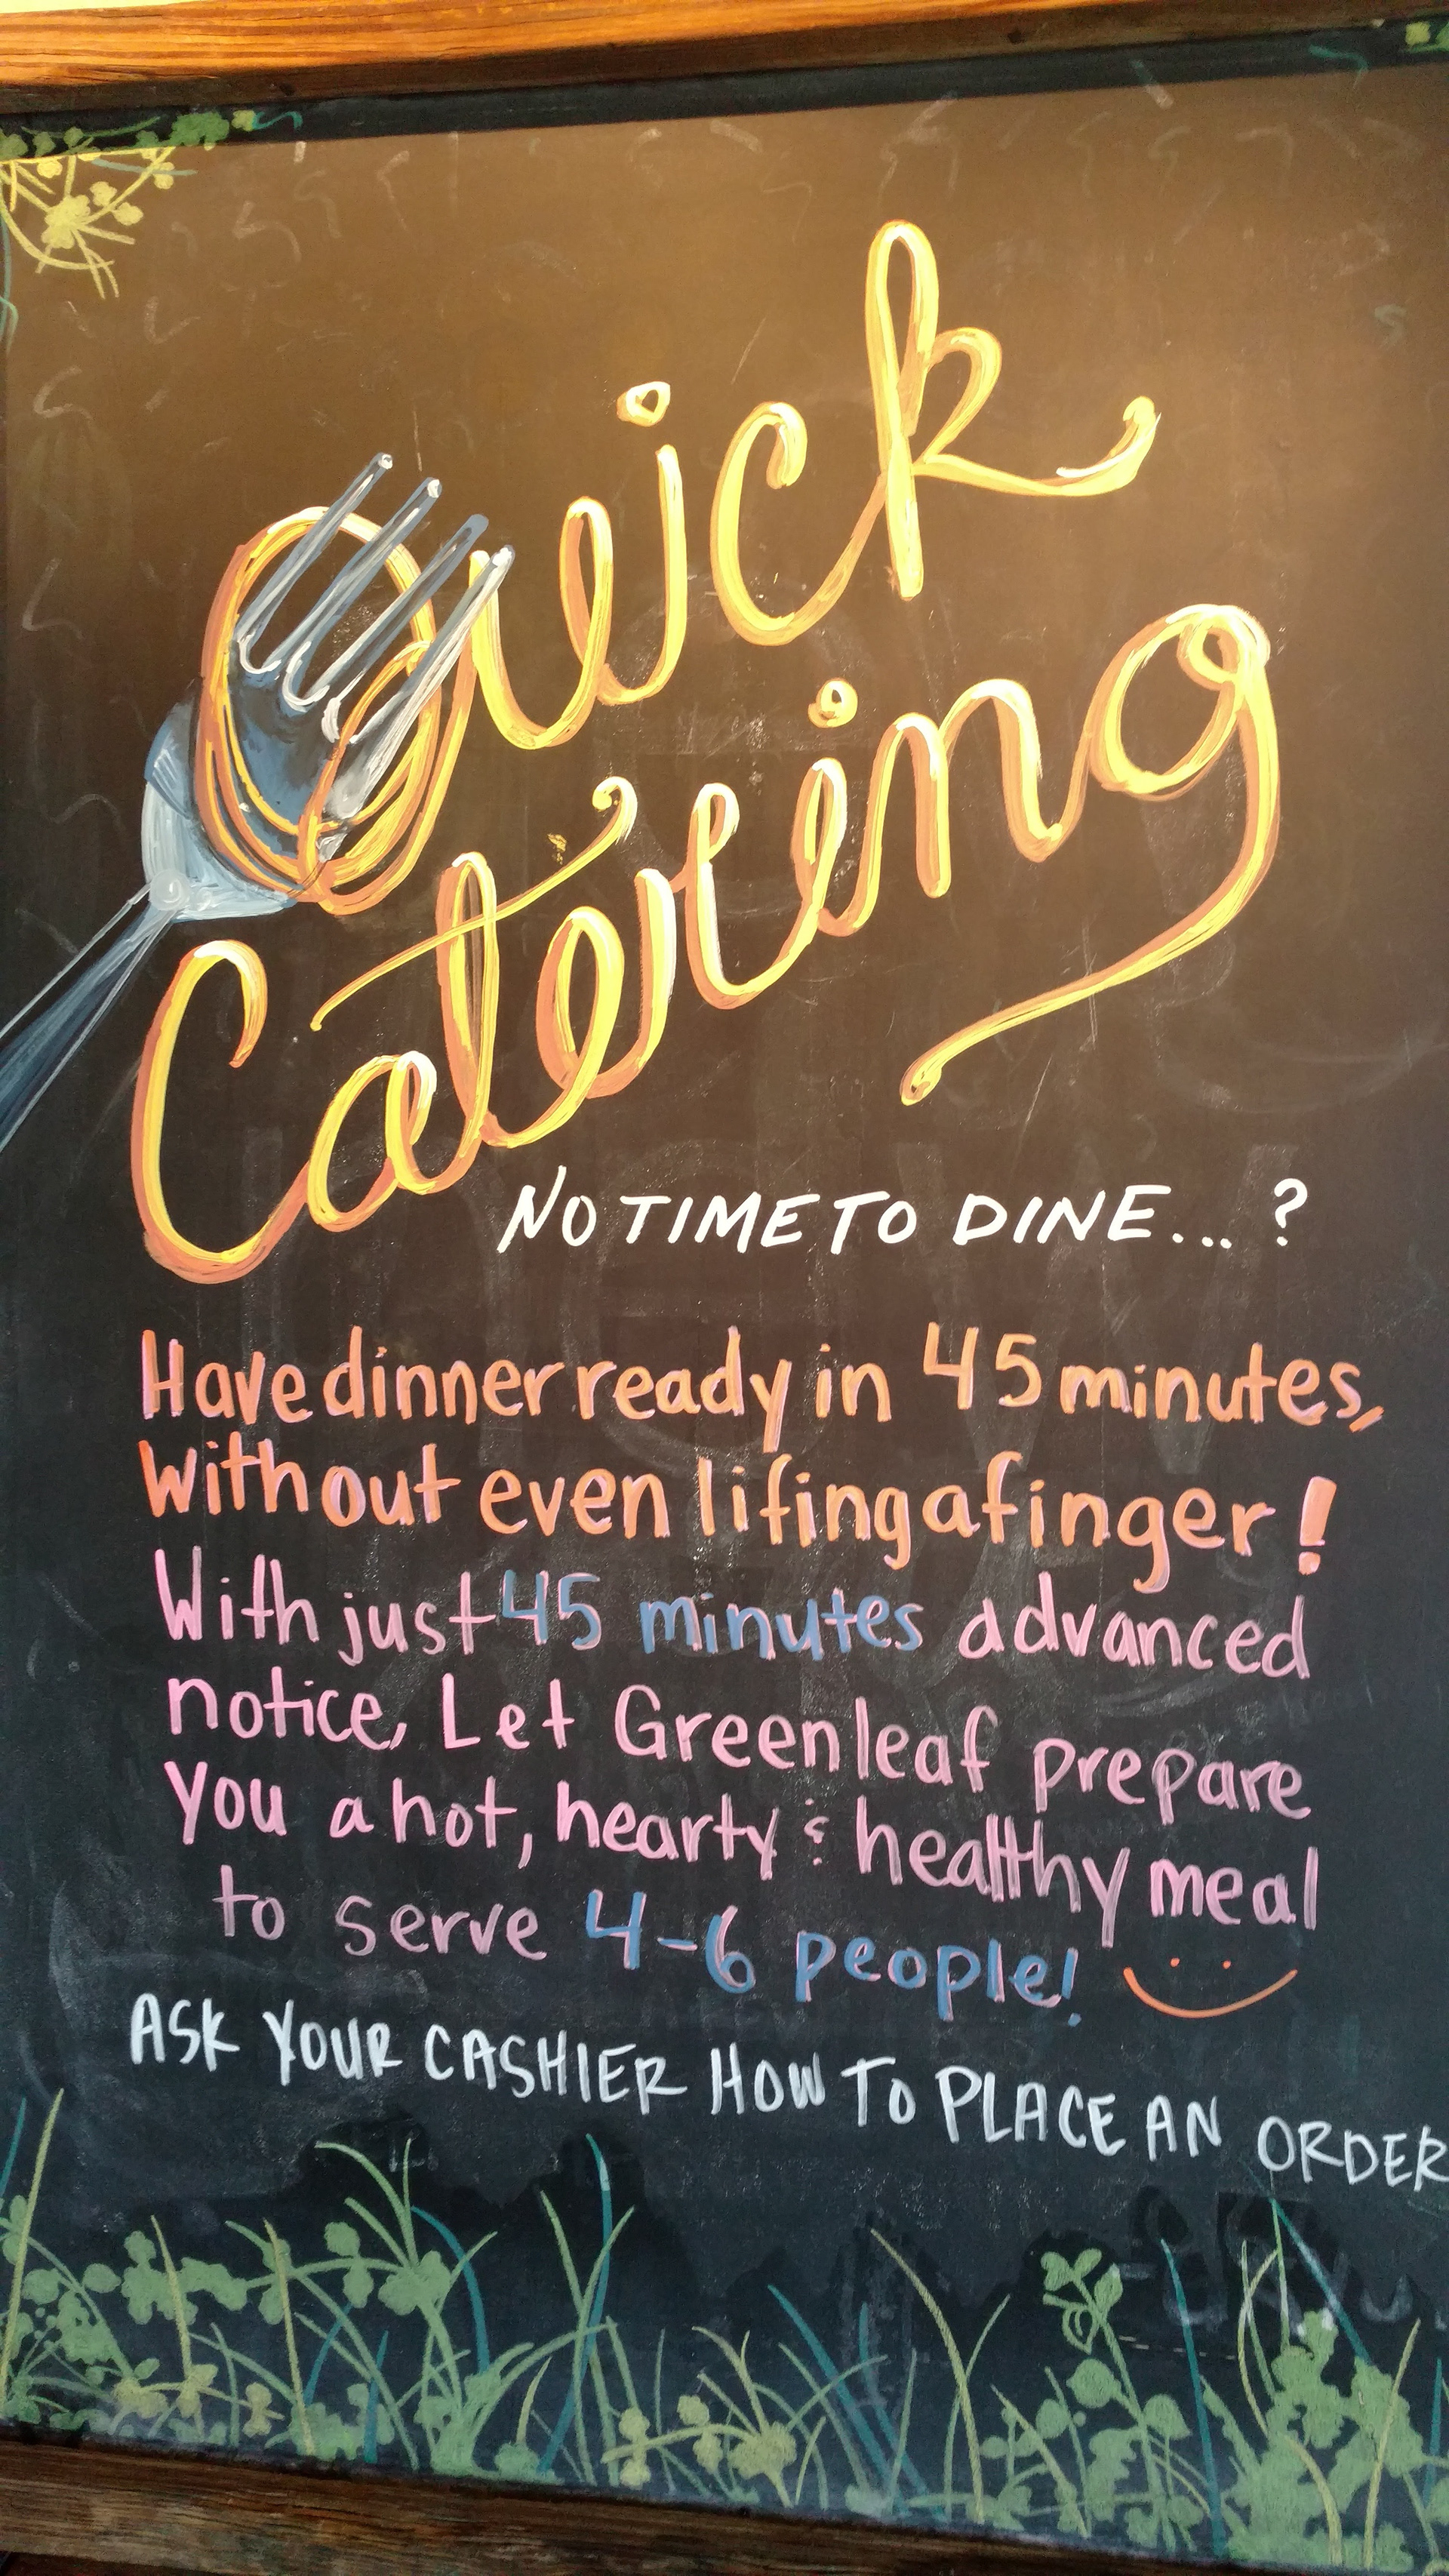 Quick
Catering
NO TIME TO DINE...?
Have dinner ready in 45 minutes,
without even lifing a finger!
With just 45 minutes advanced
notice, Let Greenleaf prepare
you a hot, hearty & healthy meal
to serve 4-6 people!
ASK YOUR CASHIER HOW TO PLACE AN ORDER